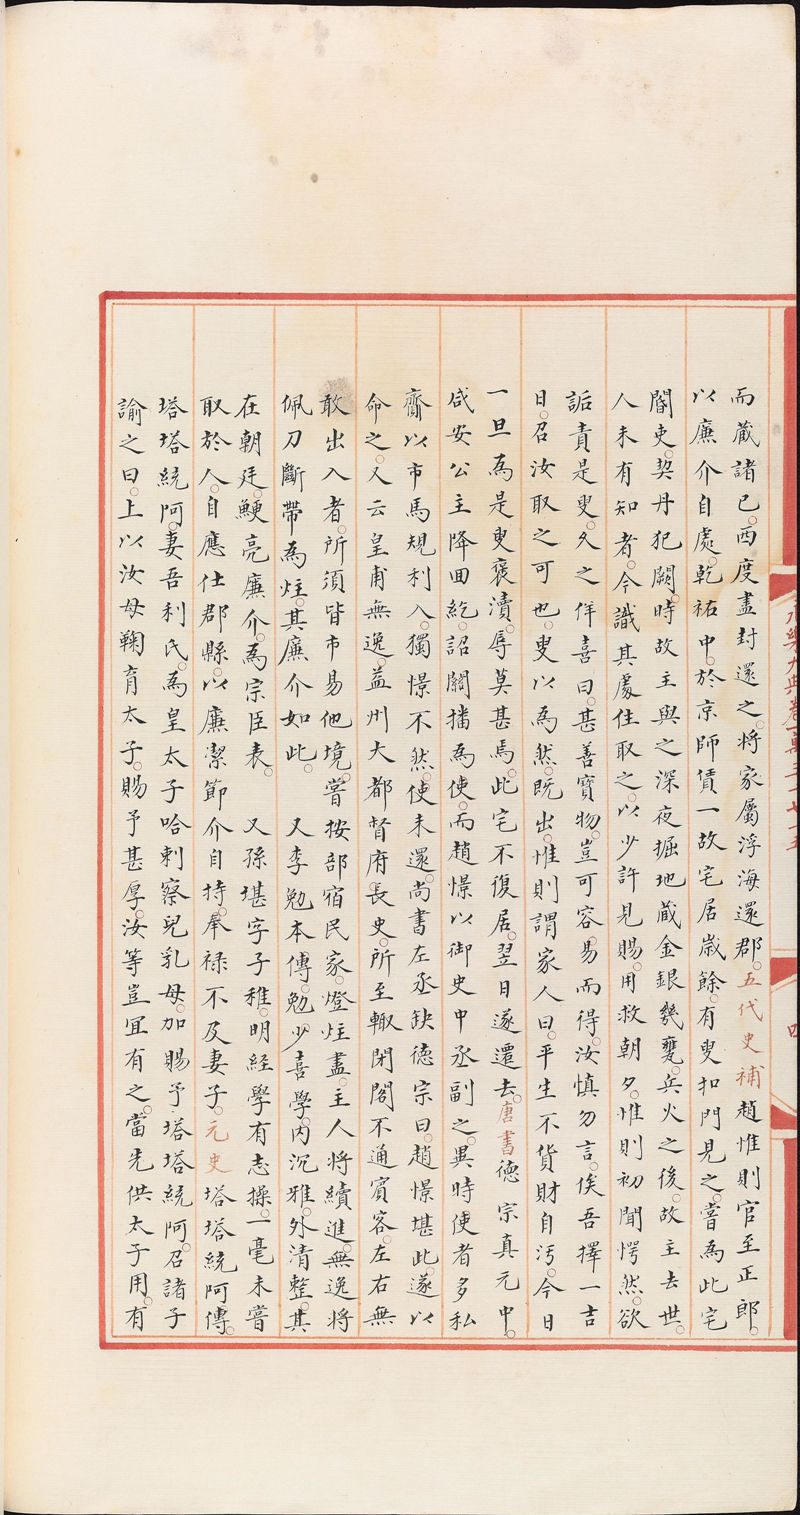 而蔵諸已。西度盡封還之。将家屬浮海還郡。五代史補趙惟則官至正郎。
以廉介自處。乾祐中。於京師賃一故宅居歳餘。有叟扣門見之。嘗為此宅
閽吏。契丹犯闕。時故主與之深夜掘地蔵金銀幾甕。兵火之後。故主去世。
人未有知者。今識其處。住取之。以少許見賜。用救朝夕。惟則初聞愕然。欲
詬責是叟。久之佯喜曰。甚善寳物。豈可容易而得。汝慎勿言。俟吾擇一吉
日。召汝取之可也。叟以為然。既出。惟則謂家人曰。平生不貨財自汚。今日
一旦為是叟䙝瀆。辱莫甚焉。此宅不復居。翌日遂遷去。唐書德宗真元中。
咸安公主降回紇。詔關播為使。而趙憬以御史中丞副之。異時使者多私
齎以市馬規利入。獨憬不然。使未還。尚書左丞缺。德宗曰。趙憬堪此。遂以
命之。又云皇甫無逸。益州大都督府長史。所至輙閉閤不通賓客。左右無
敢出入者。所須皆市易他境。嘗按部宿民家。燈炷盡。主人将續進。無逸将
佩刀斷帶為炷。其廉介如此。　又李勉本傳。勉少喜學。内沉雅。外清整。其
在朝廷。鯁亮廉介。為宗臣表。　又孫堪字子穉。明經學有志操。一毫未嘗
取於人。自應仕郡縣。以廉潔節介自持。奉禄不及妻子。元史塔塔統阿傳。
塔塔統阿。妻吾利氏。為皇太子哈剌察兒乳母。加賜予。塔塔統阿。召諸子
諭之曰。上以汝母鞠育太子。賜予甚厚。汝等豈冝有之。當先供太子用。有